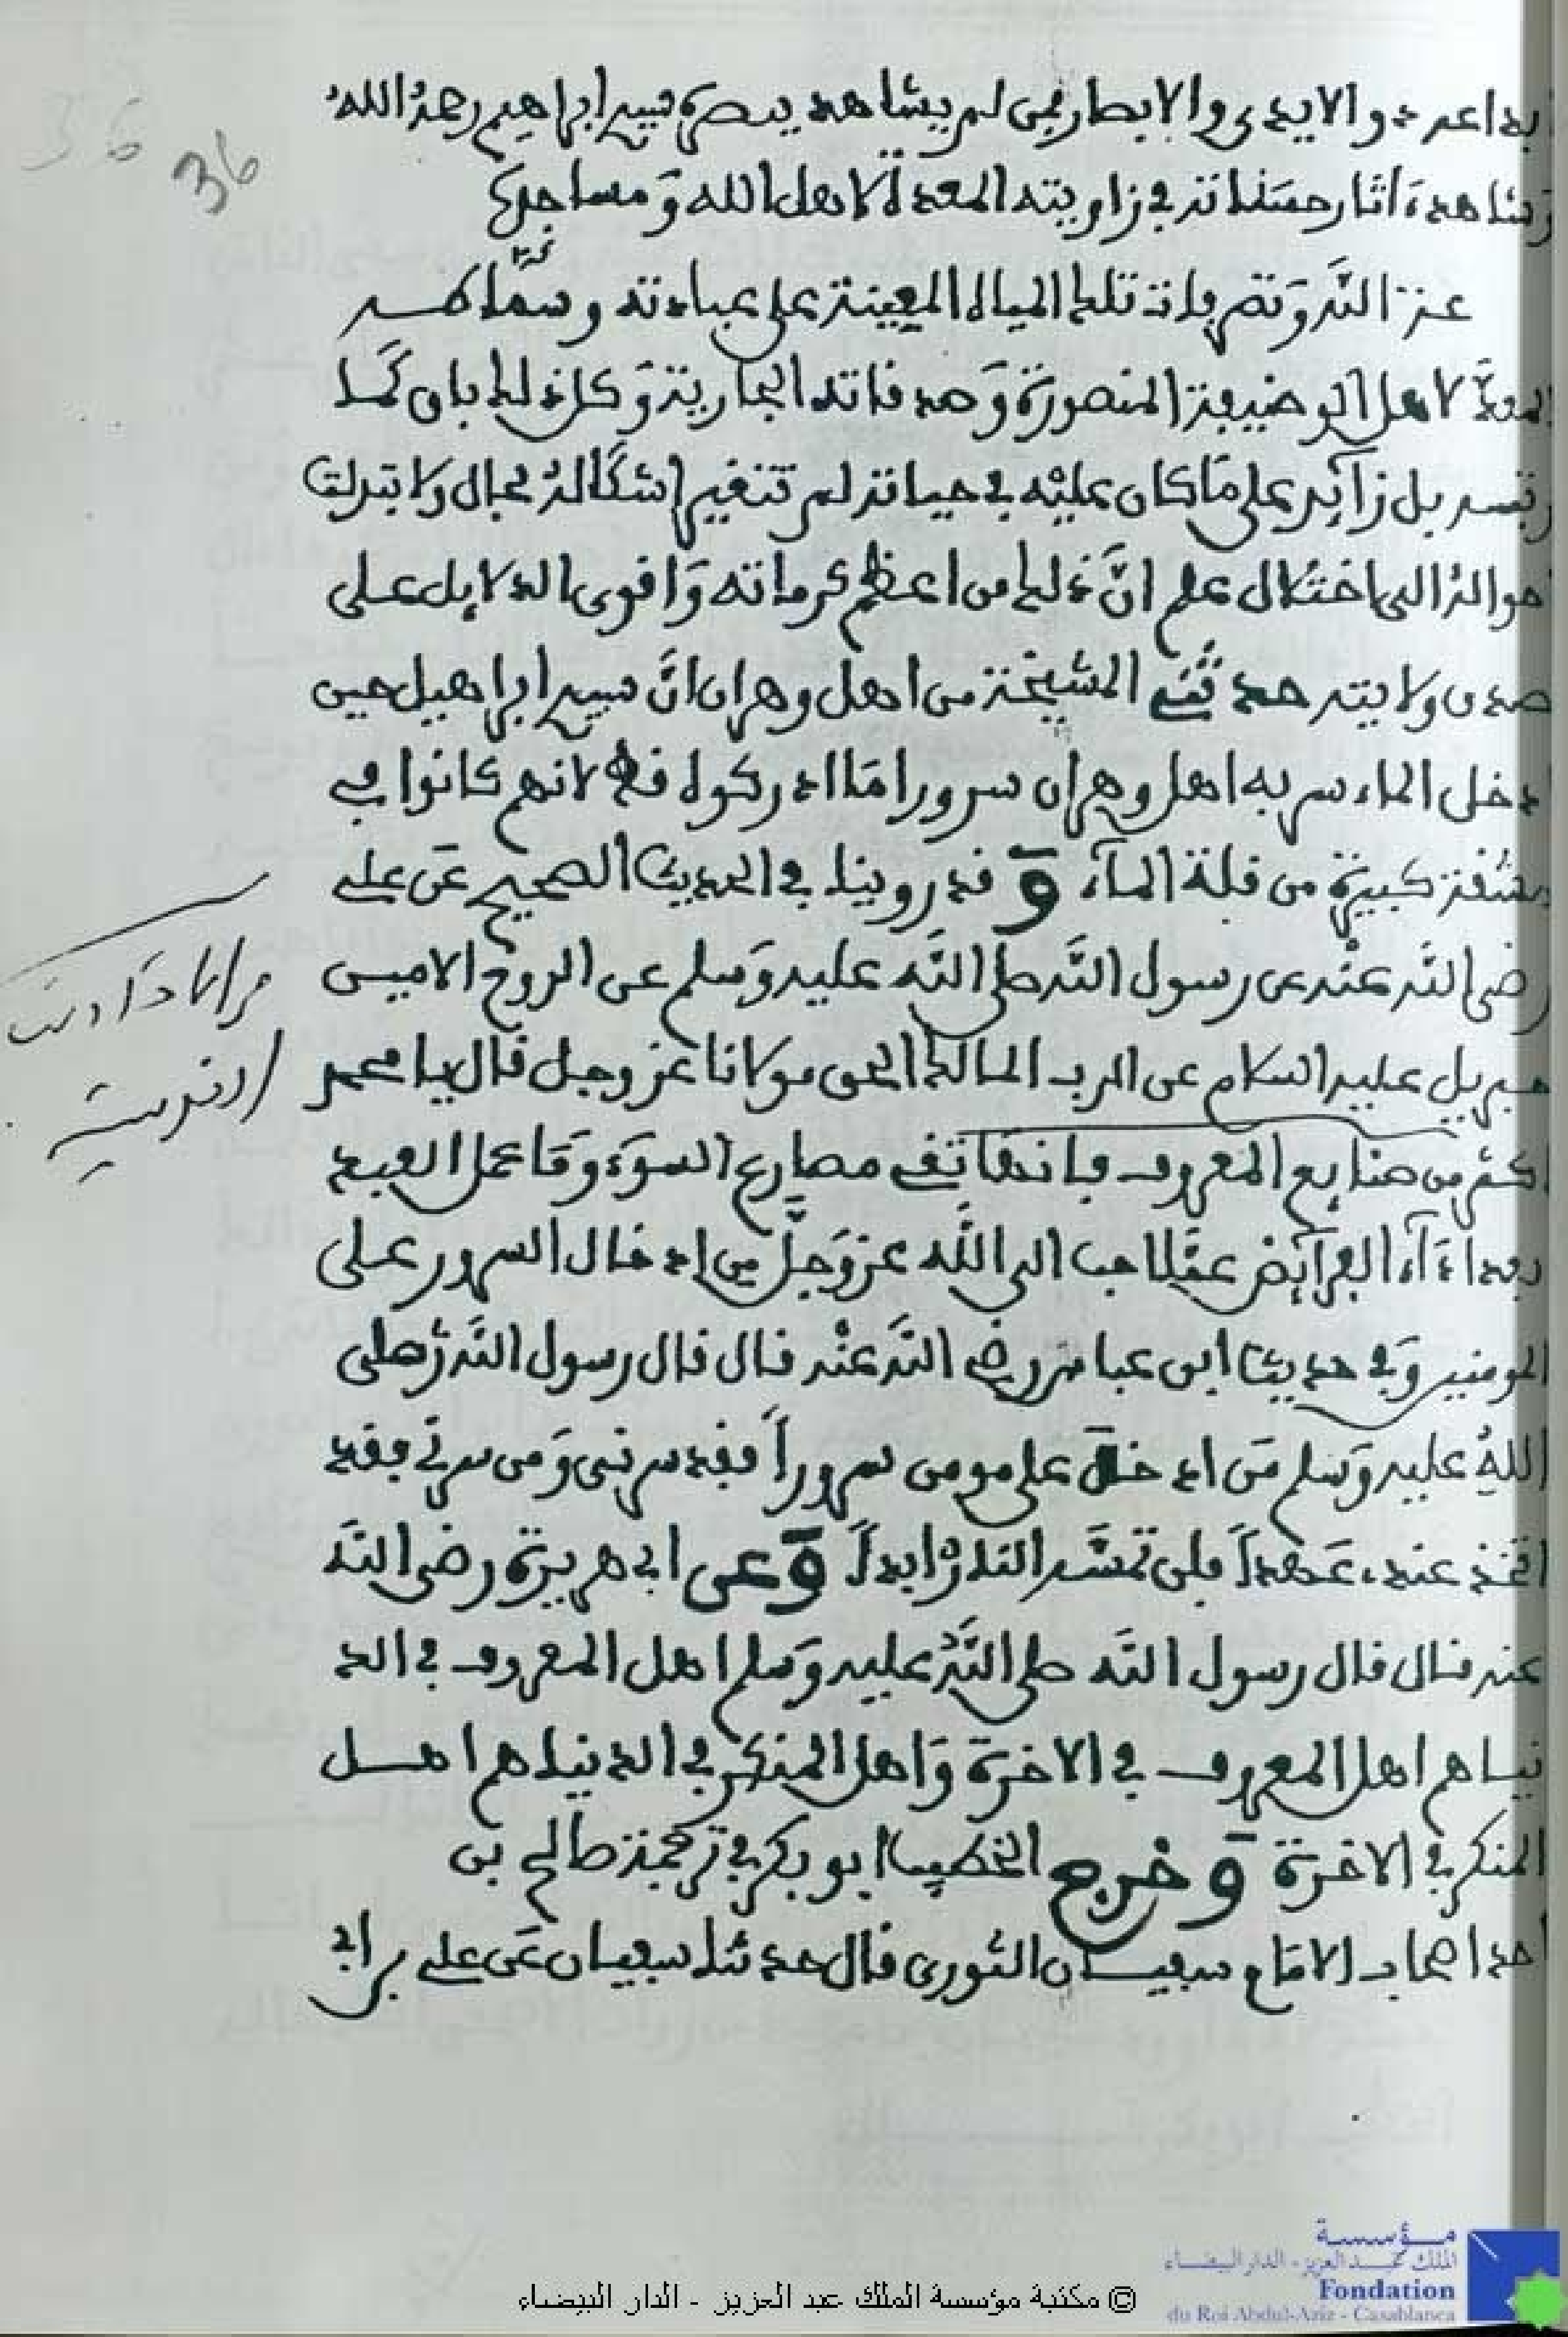 36
والايدى والابصار فمن لم يشاهد ببصره سيدي ابراهيم رحمهُ الله
شاهد ءاثار حسناته في زاويته المعدة لاهل الله وَمساجدِه
عز اللَّه وَتصرفاته تلك المياه المعينة على عبادته وسقا
لاهل الوضيعة المنصورَة وَصدقاته الجارية وَكل ذلك باق كما
بل زايد على مَا كان عليْه في حياته لم تتغير اشكالهُ بحال ولا تبدلت
احوالهُ الى اختلال علم انَّ ذلك من اعظم كرماته وَاقوى الدلايل على
صدق ولايته حدثني المشيخة من اهل وهران انَّ سيدي ابراهيم حين
دخل الماء سر به اهل وهران سرورا مَا ادركوه قط لانهم كانوا في
مشقة كبيرة من قلة المآء وَقد روينا في الحديث الصحيح عَن علي
رضي اللَّه عنْه عن رسول اللَّه صلى اللَّه عليه وَسلم عن الروح الامين
جبريل عليه السلام عن الرب المالك الحق مولانا عز وجل قال يا محمد
اكثر من صنايع المعروف فانها تقي مصارع السوَء وَمَا عمل العبد
بعد ادَآء الفرآيض عمَلا احب الى اللَّه عز وَجلَّ من ادخال السرور على
المومنين وَفي حديث ابن عباس رضي اللَّه عنْه قال قال رسول اللَّه صلى
اللهُ عليه وَسلم مَن ادخل على مومن سروراً فقد سرني وَمن سرني فقد
اتخذ عنده عَهداً فلن تمسَّه النارُ ابداً وَعن ابي هريرة رضي اللَّه
عنه قال قال رسول اللَّه صلى اللَّه عليه وَسلم اهل المعروف في الد
نيا هم اهل المعروف في الاخرة وَاهل المنكر في الدنيا هم اهل
المنكر في الاخرة وَخرج الخطيب ابو بكر في ترجمة صالح بن
احد اصحاب الامَام سفيان الثوري قال حدثنا سفيان عَن علي بن ابي
مؤسسة
الملك عبد العزيز - الدار البيضاء
Fondation
du Roi Abdul-Aziz - Casablanca
© مكتبة مؤسسة الملك عبد العزيز - الدار البيضاء